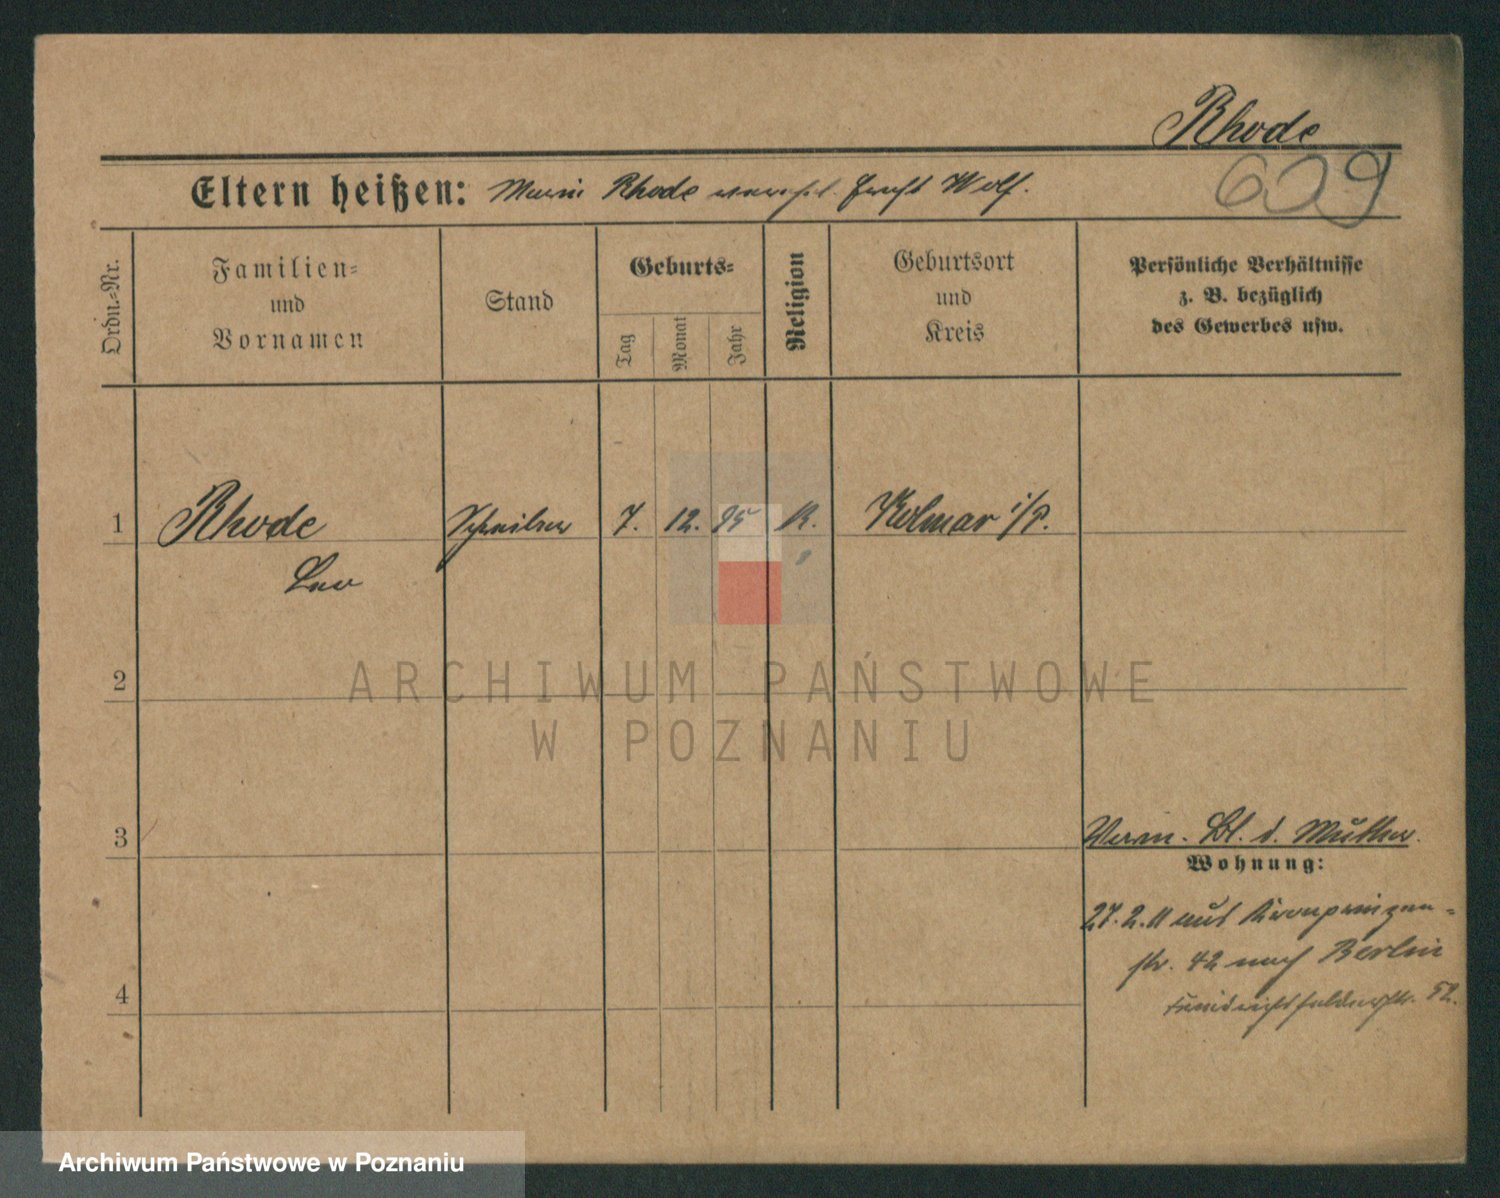 Rhode
609
Eltern heißen: Marie Rhode verehel. Wolf.
Ordn.-Nr.
Familien-
und
Vornamen
Stand
Geburts-
Tag
Monat
Jahr
Religion
Geburtsort
und
Kreis
Persönliche Verhältnisse
z. B. bezüglich
des Gewerbes usw.
1 Rhode Schreiber 7. 12. 95 K. Kolmar i/P.
Leo
2
ARCHIWUM PAŃSTWOWE
W POZNANIU
3
Verm. Bl. d. Mutter.
Wohnung:
27.2.11 aus Kronprinzen-
str. 42 nach Berlin
4
52.
Archiwum Państwowe w Poznaniu